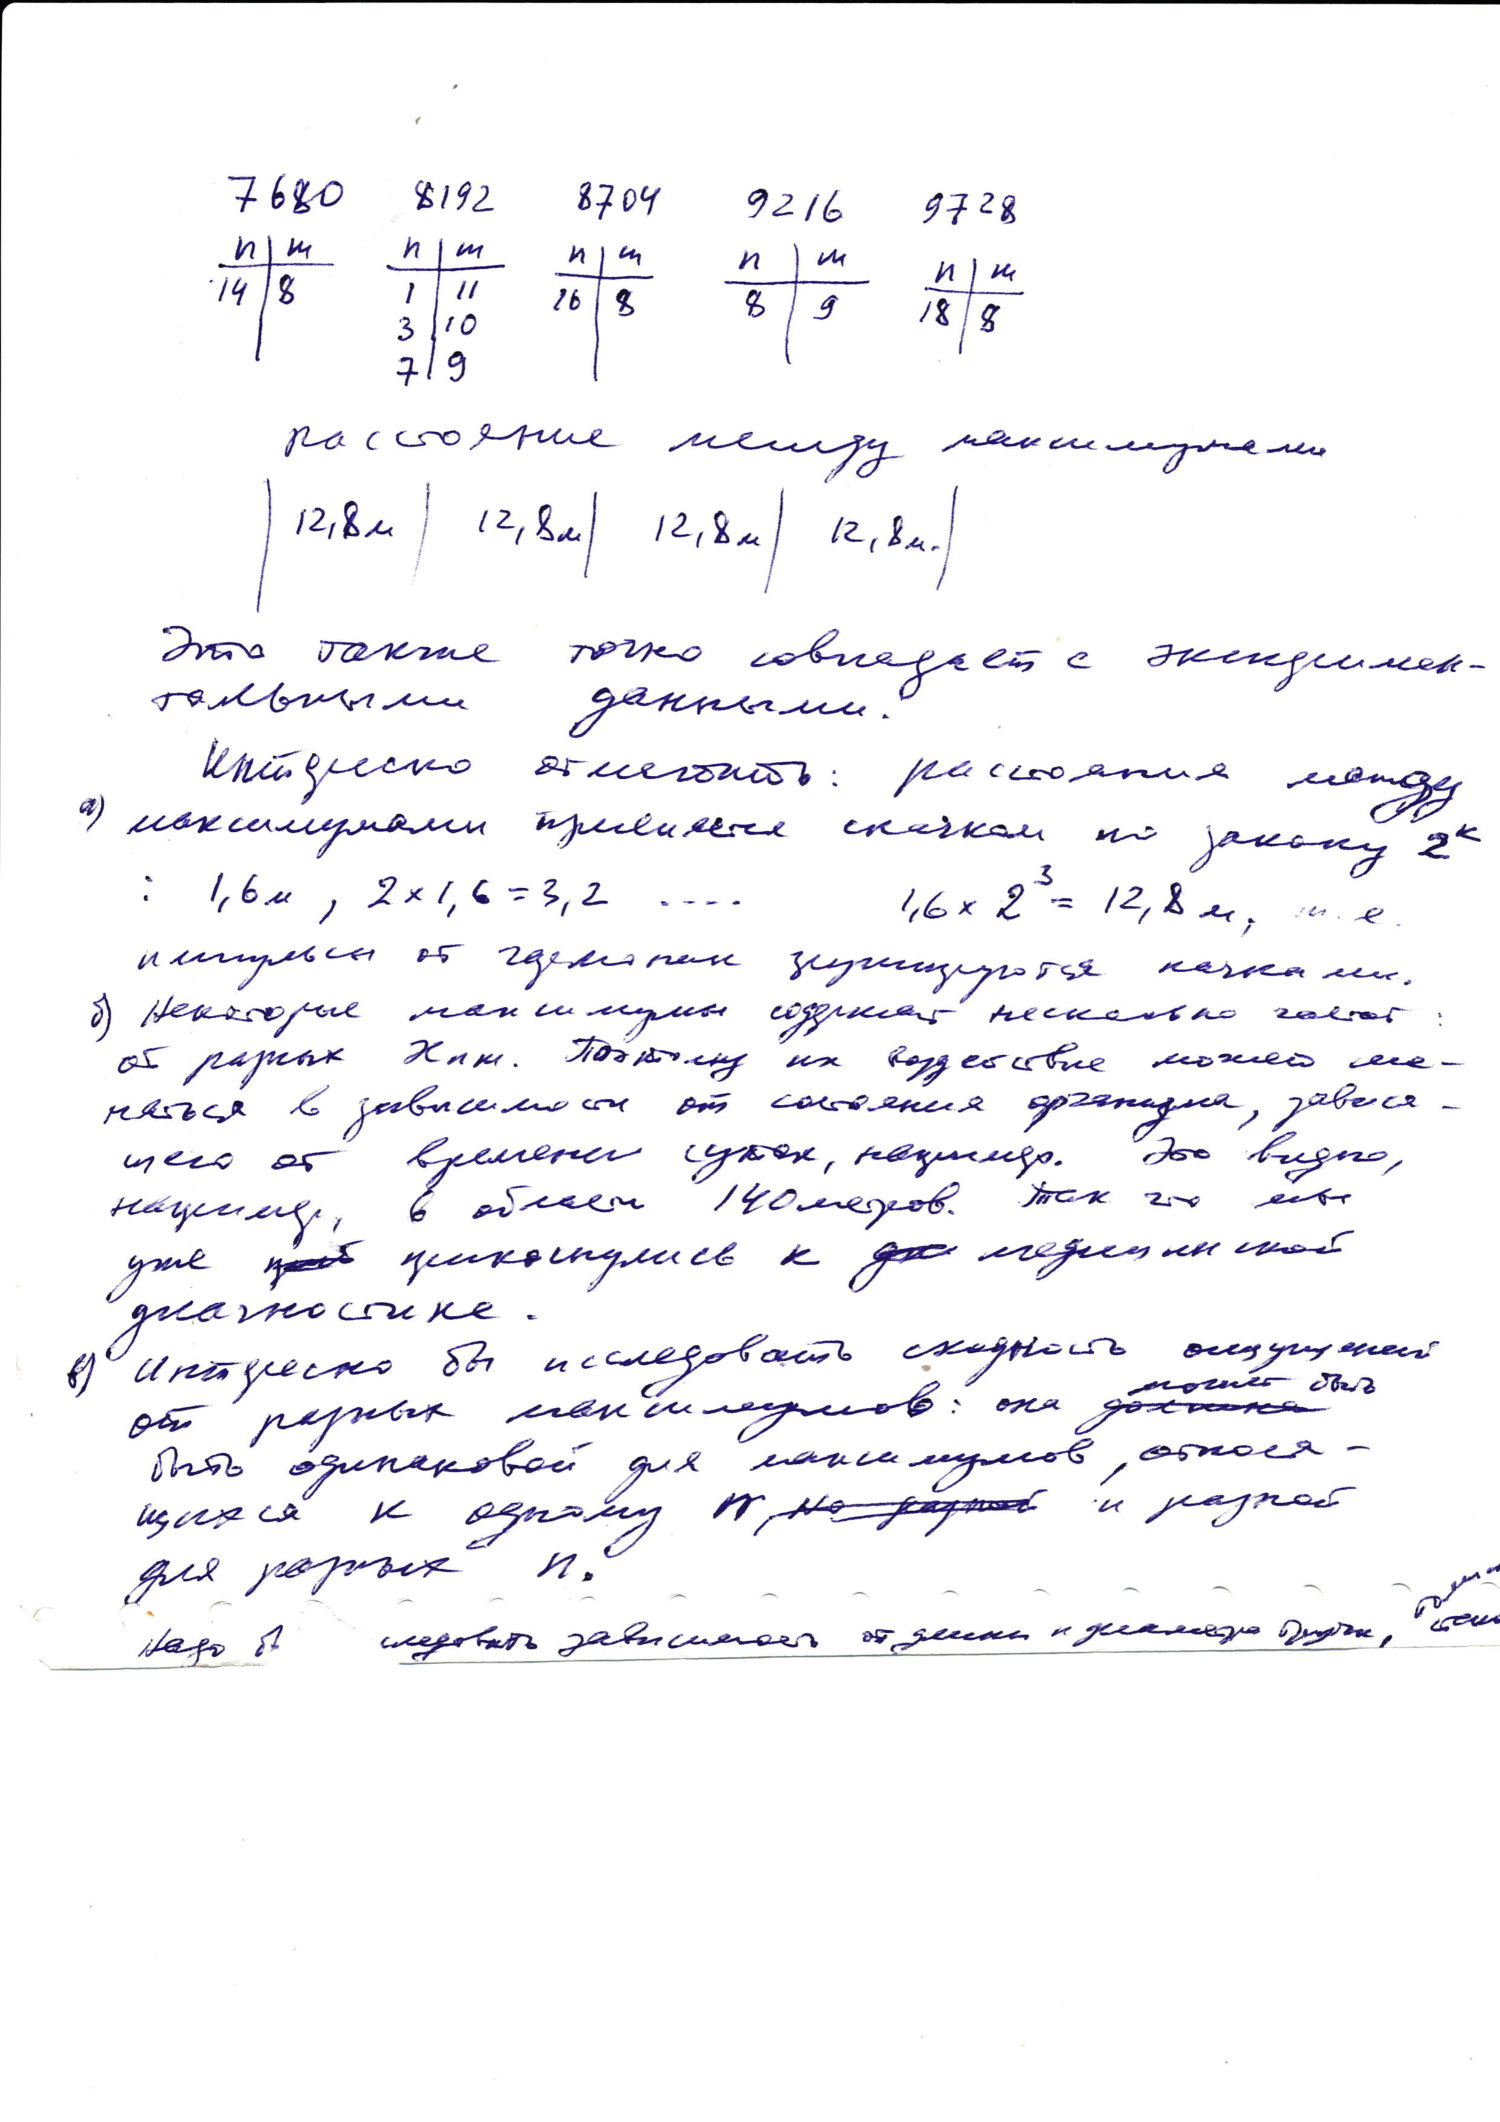 7680 8192 8704 9216 9728
n m n m n m n m n m
14 8 1 11 16 8 8 9 18 8
3 10
7 9
расстояние между максимумами
12,8м 12,8м 12,8м 12,8м.
Это также точно совпадает с эксперимен-
тальными данными.
Интересно отметить: расстояния между
а) максимумами меняется скачком по закону 2ᵏ
: 1,6м, 2×1,6=3,2 .... 1,6×2³=12,8м, т.е.
импульсы от группируются пачками.
б) Некоторые максимумы содержат несколько частот:
от разных Xnm. Поэтому их воздействие может ме-
няться в зависимости от состояния организма, завися-
щего от времени суток, например. Это видно,
например, в области 140 метров. Так что мы
уже прикоснулись к медицинской
диагностике.
в) Интересно бы исследовать сходность ощущений
от разных максимумов: она должна может быть
быть одинаковой для максимумов, относя-
щихся к одному n, но разной и разной
для разных n.
Надо следовать зависимость от длины и диаметра трубки,